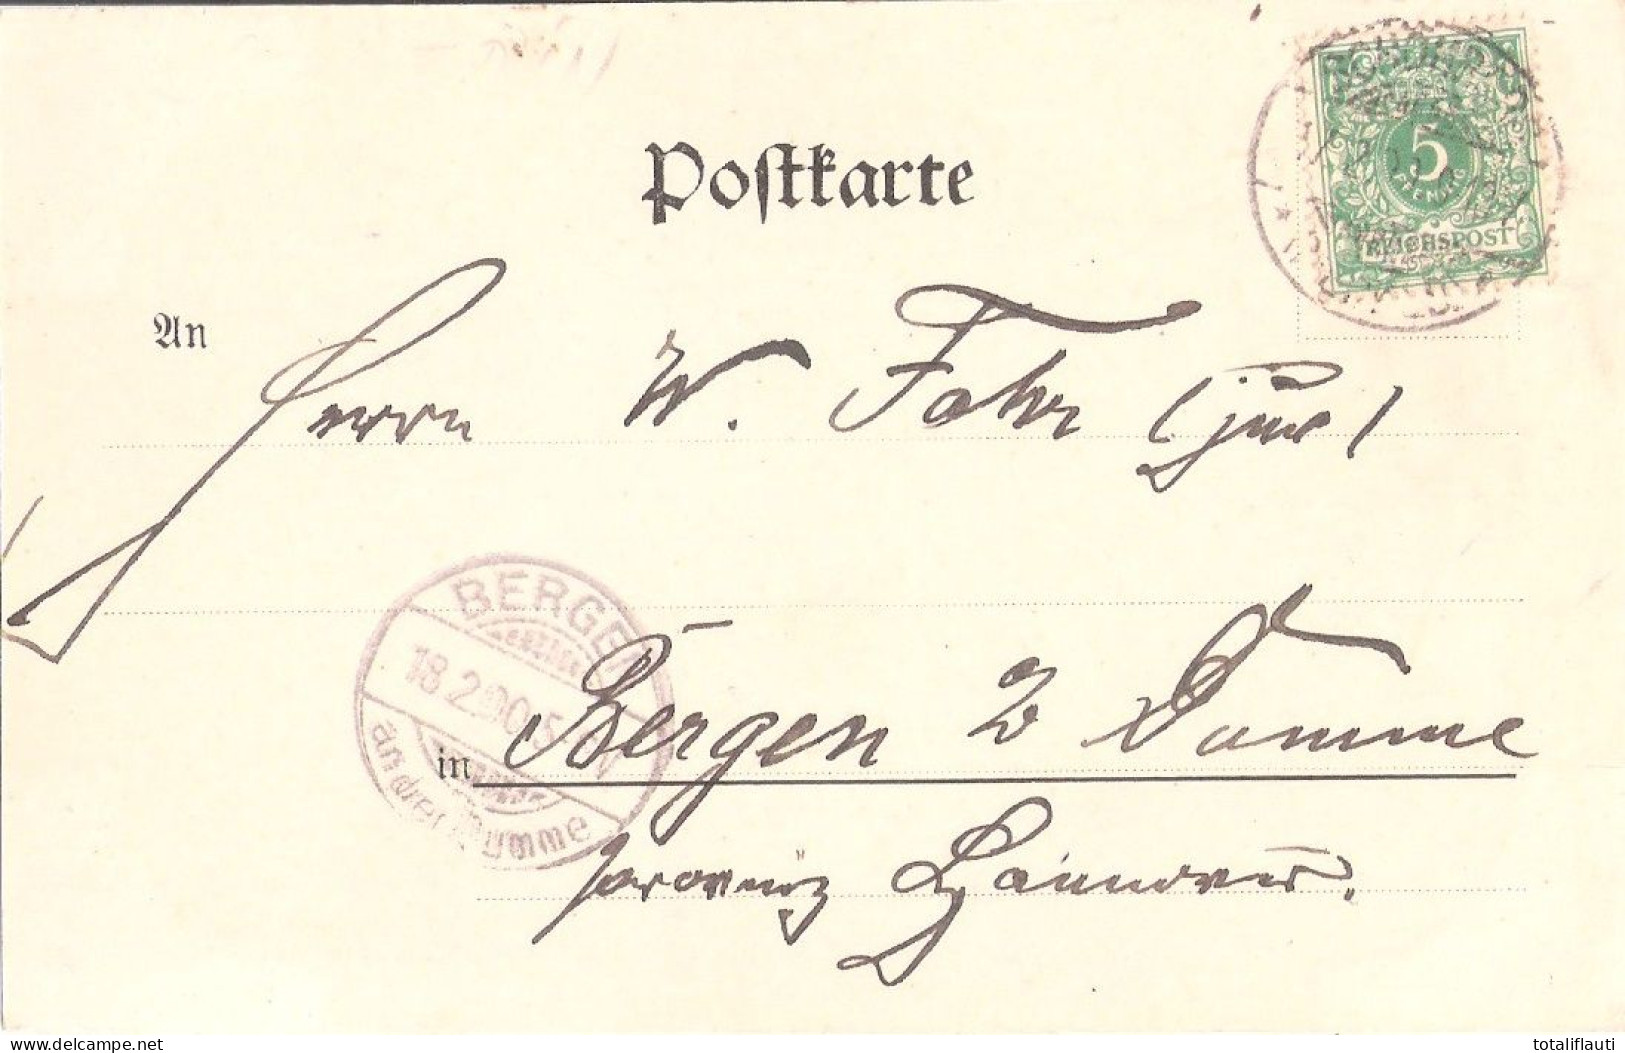 Postkarte
5
PFENNIG
REICHSPOST
An
Herrn W. Fahr (jun)
BERGEN
18.2.00.5
an der Dumme
in Bergen a Dumme
Provinz Hannover.
delcampe.net
totaliflauti